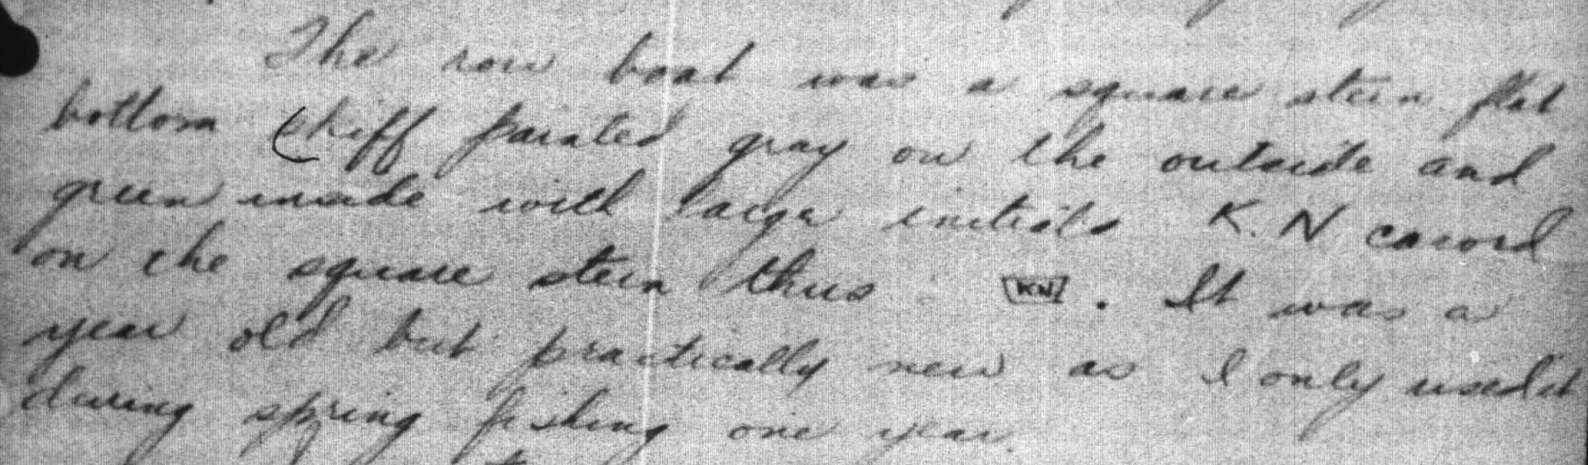 The row boat was a square stern flat
bottom skiff painted gray on the outside and
green inside with large initials K. N carved
on the square stern thus KN. It was a
year old but practically new as I only used it
during spring fishing one year.